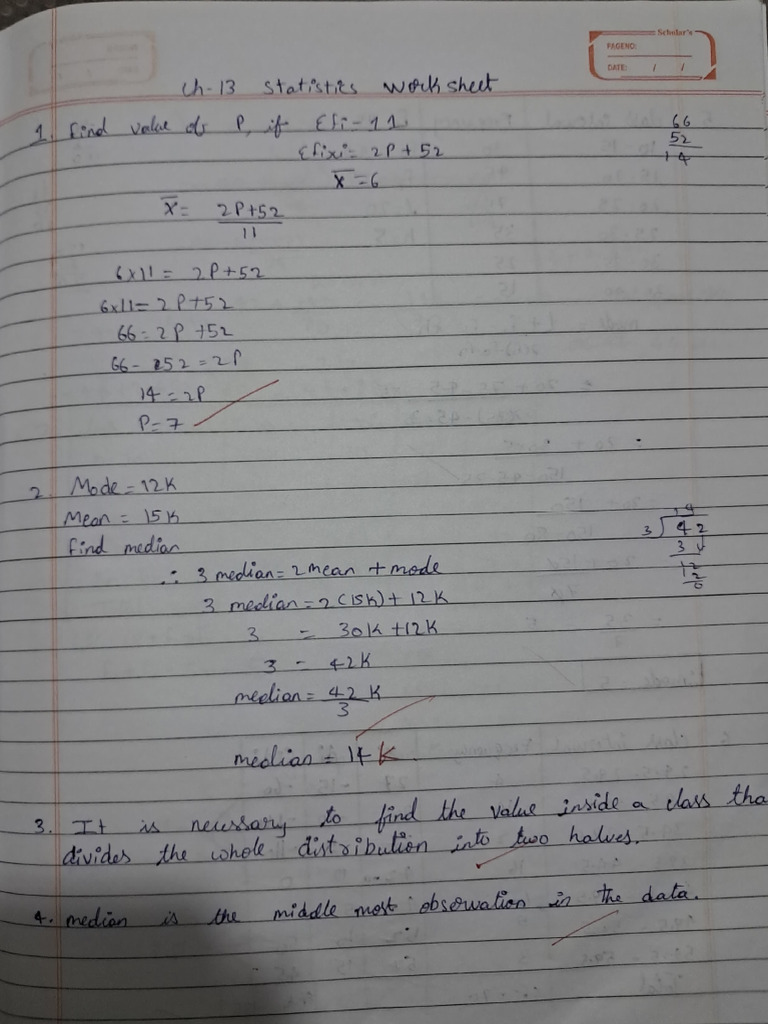 Scholar's
PAGENO:
DATE: / /
Ch-13 Statistics Worksheet
1. Find value of P, if Σfi = 11
Σfixi = 2P + 52
x̄ = 6
66
52
14
x̄ = 2P+52
11
6x11 = 2P+52
6x11 = 2P+52
66 = 2P +52
66 - 52 = 2P
14 = 2P
P = 7
2. Mode = 12K
Mean = 15K
Find median
∴ 3 median = 2 mean + mode
3 median = 2(15K) + 12K
3 = 30K +12K
3 = 42K
median = 42 K
3
median = 14 K
14
3) 42
3
12
12
0
3. It is necessary to find the value inside a class tha
divides the whole distribution into two halves.
4. median is the middle most observation in the data.